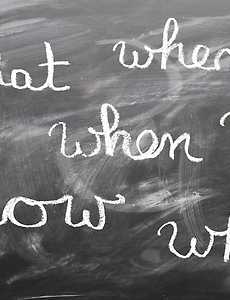 hat wher
when
ow
wh